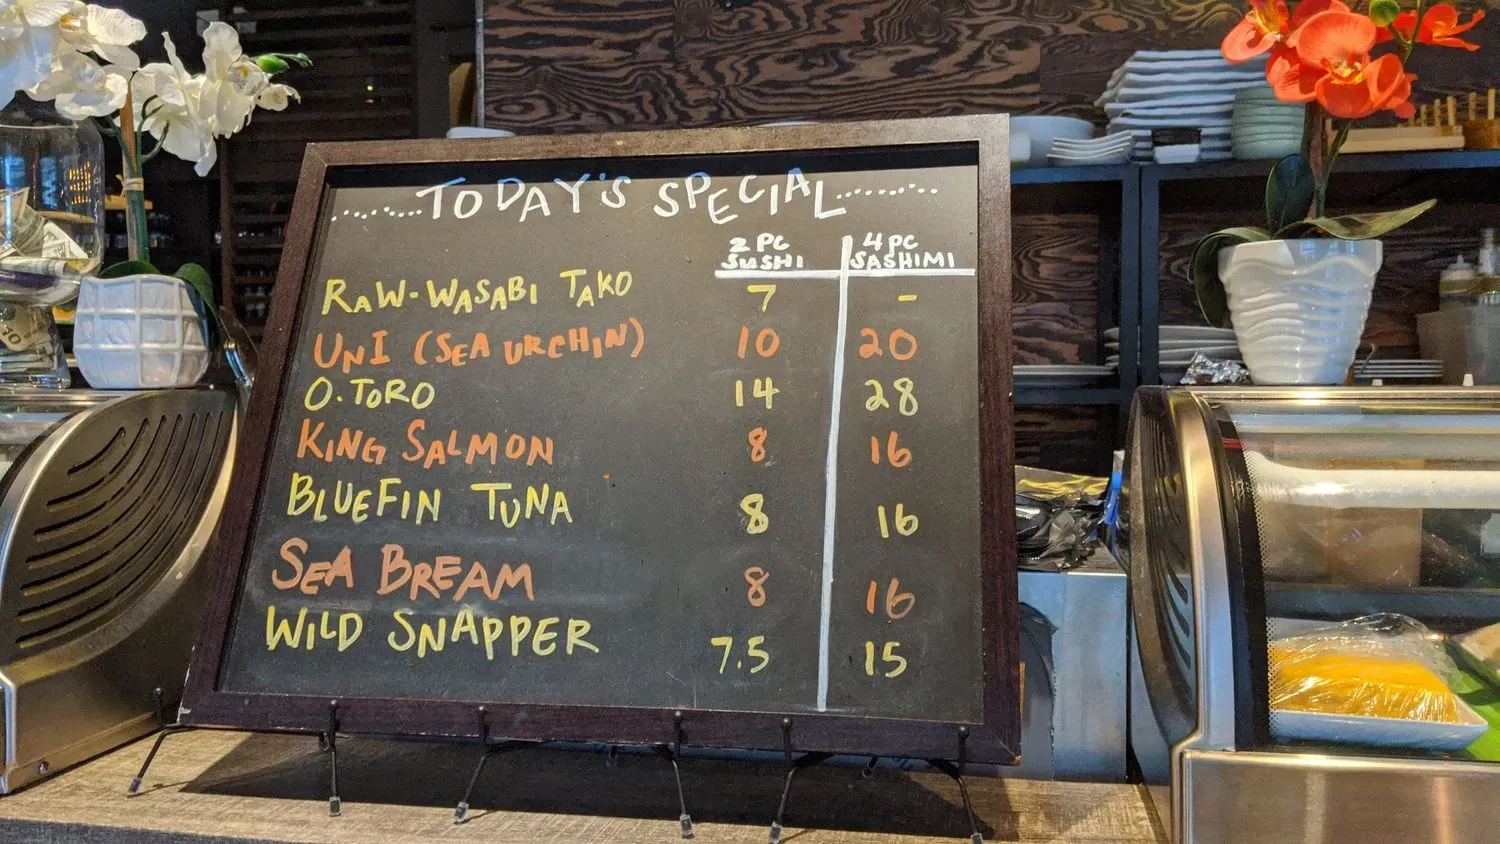 ........TODAY'S SPECIAL.........
2 PC SUSHI 4 PC SASHIMI
RAW-WASABI TAKO 7 -
UNI (SEA URCHIN) 10 20
O.TORO 14 28
KING SALMON 8 16
BLUEFIN TUNA 8 16
SEA BREAM 8 16
WILD SNAPPER 7.5 15